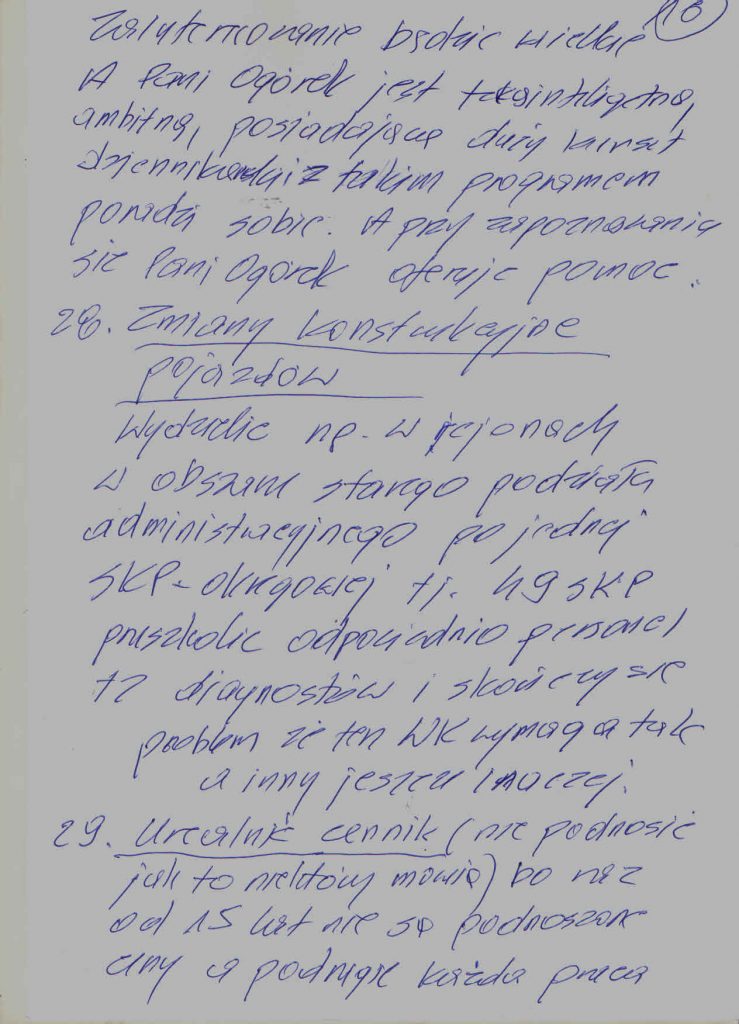 18
Zainteresowanie będzie wielkie
A Pani Ogórek jest taka inteligetna,
ambitna, posiadającą duży
dziennikarski z takim programem
poradzi sobie. A przy zapoznawaniu
się Pani Ogórek oferuje pomoc.
28. Zmiany konstrukcyjne
pojazdów
Wydzielić np. w rejonach
w obszarze starego podziału
administracyjnego po jednej
SKP - okręgowej tj. 49 SKP
przeszkolić odpowiednio personel
tz diagnostów i skończy się
problem że ten WK wymaga tak
a inny jeszcze inaczej.
29. Urealnić cennik (nie podnosić
jak to niektórzy mówią) bo
od 15 lat nie są podnoszone
ceny a podraża każda praca